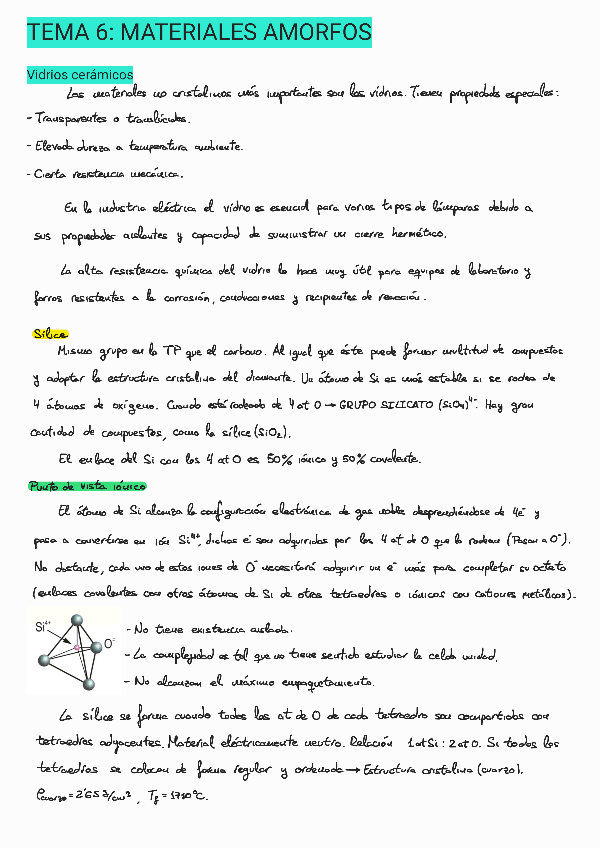 TEMA 6: MATERIALES AMORFOS
Vidrios cerámicos
Los materiales no cristalinos más importantes son los vidrios. Tienen propiedades especiales:
- Transparentes o translúcidos.
- Elevada dureza a temperatura ambiente.
- Cierta resistencia mecánica.
En la industria eléctrica el vidrio es esencial para varios tipos de lámparas debido a
sus propiedades aislantes y capacidad de suministrar un cierre hermético.
La alta resistencia química del vidrio lo hace muy útil para equipos de laboratorio y
forros resistentes a la corrosión, conducciones y recipientes de reacción.
Sílice
Mismo grupo en la TP que el carbono. Al igual que éste puede formar multitud de compuestos
y adoptar la estructura cristalina del diamante. Un átomo de Si es más estable si se rodea de
4 átomos de oxígeno. Cuando está rodeado de 4 at O → GRUPO SILICATO (SiO4)⁴⁻. Hay gran
cantidad de compuestos, como la sílice (SiO₂).
El enlace del Si con los 4 at O es 50% iónico y 50% covalente.
Punto de vista iónico
El átomo de Si alcanza la configuración electrónica de gas noble desprendiéndose de 4e⁻ y
pasa a convertirse en ión Si⁴⁺, dichos e⁻ son adquiridos por los 4 at de O que lo rodean (Pasan a O⁻).
No obstante, cada uno de estos iones de O⁻ necesitará adquirir un e⁻ más para completar su octeto
(enlaces covalentes con otros átomos de Si de otros tetraedros o iónicos con cationes metálicos).
Si⁴⁺
O⁻
- No tiene existencia aislada.
- La complejidad es tal que no tiene sentido estudiar la celda unidad.
- No alcanzan el máximo empaquetamiento.
La sílice se forma cuando todos los at de O de cada tetraedro son compartidos con
tetraedros adyacentes. Material eléctricamente neutro. Relación 1 at Si : 2 at O. Si todos los
tetraedros se colocan de forma regular y ordenada → Estructura cristalina (cuarzo).
ρcuarzo = 2'65 g/cm³, Tf = 1710 ºC.